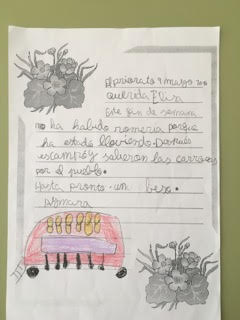 El priorato 9 marzo
querida Elisa
Este fin de semana
no ha habido romeria porque
ha estado lloviendo. Después
escampó y salieron las carrozas
por el pueblo.
Hasta pronto. un beso.
Aymara